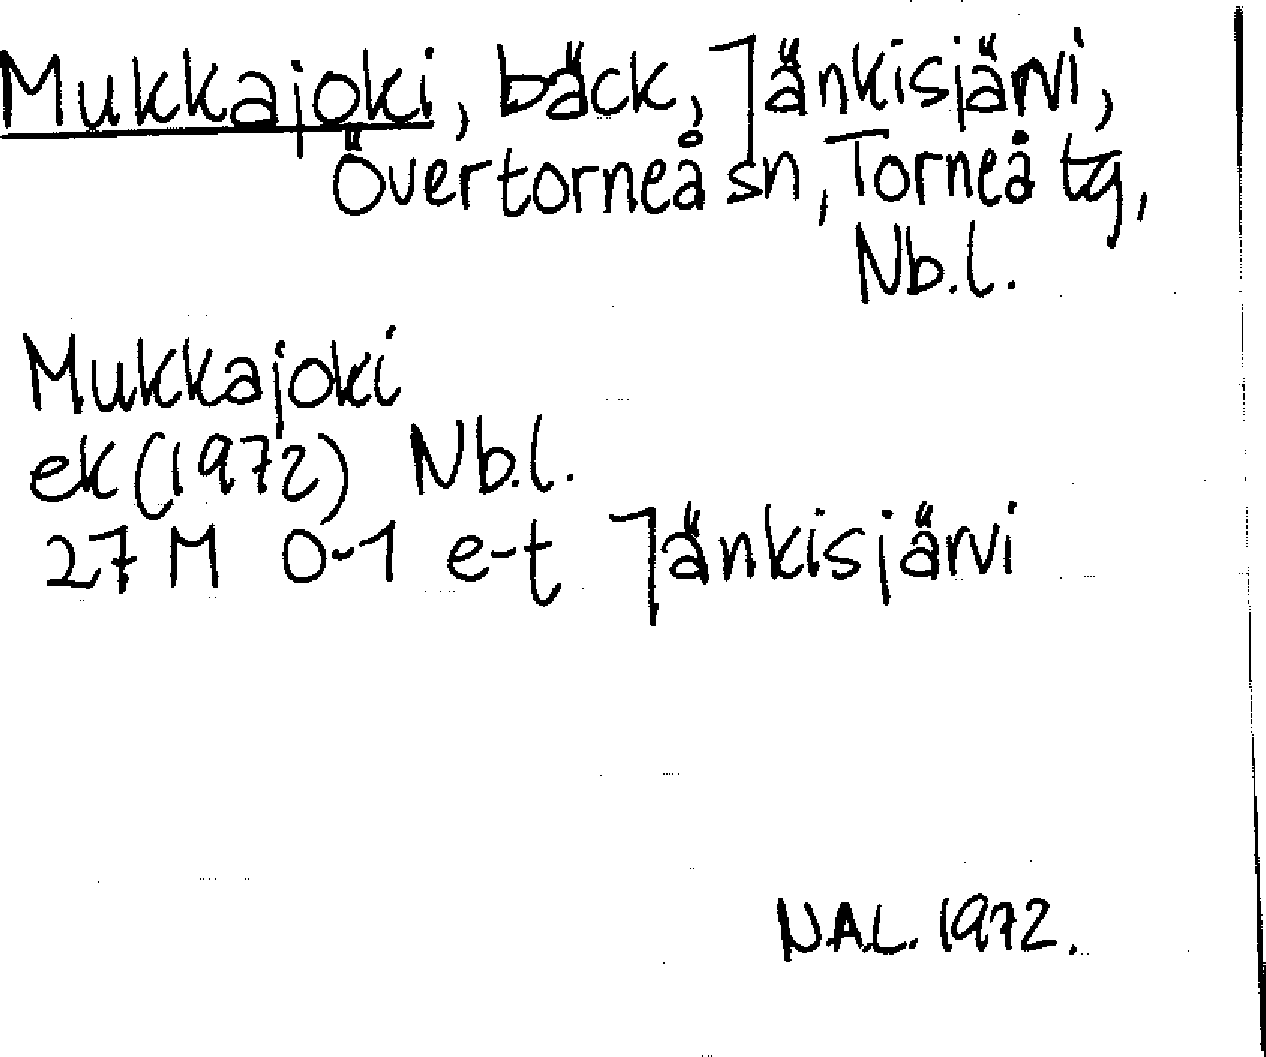 Mukkajoki, bäck, Jänkisjärvi,
Övertorneå sn, Torneå tg,
Nb.l.
Mukkajoki
ek (1972) Nb.l.
27 M 0-1 e-t Jänkisjärvi
N.A.L. 1972.